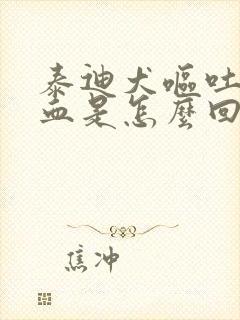 泰迪犬嘔吐
血是怎麼回
焦冲